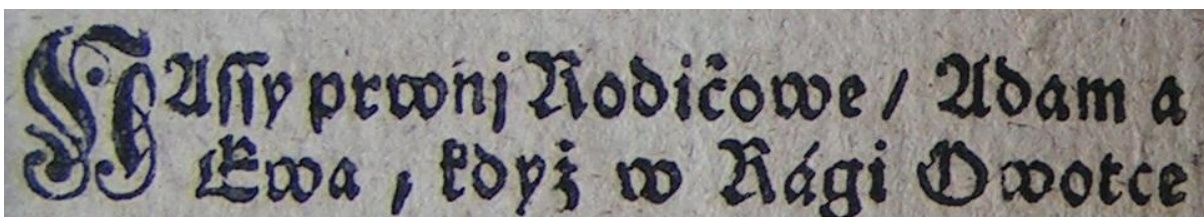 NAssy prwnj Rodičowe / Adam a
Ewa , když w Rági Owotce